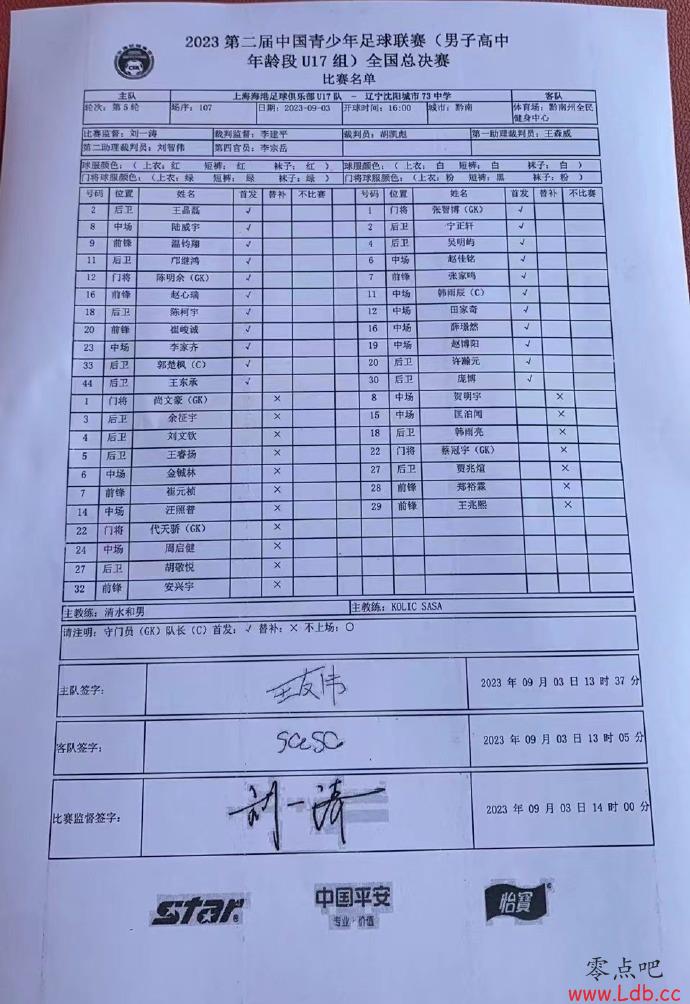 2023 第二届中国青少年足球联赛（男子高中
年龄段 U17 组）全国总决赛
比赛名单
主队 上海海港足球俱乐部U17队 - 辽宁沈阳城市73中学 客队
轮次：第5轮 场序：107 日期：2023-09-03 开球时间：16:00 城市：黔南 体育场：黔南州全民
健身中心
比赛监督：刘一涛 裁判监督：李建平 裁判员：胡凯彪 第一助理裁判员：王森威
第二助理裁判员：刘智伟 第四官员：李宗岳
球服颜色：（上衣：红 短裤：红 袜子：红） 球服颜色：（上衣：白 短裤：白 袜子：白）
门将球服颜色：（上衣：绿 短裤：绿 袜子：绿） 门将球服颜色：（上衣：粉 短裤：黑 袜子：粉）
号码 位置 姓名 首发 替补 不比赛 号码 位置 姓名 首发 替补 不比赛
2 后卫 王晶磊 √ 1 门将 张智博（GK） √
8 中场 陆威宇 √ 2 后卫 宁正轩 √
9 前锋 温钧翔 √ 4 后卫 吴明屿 √
11 后卫 邝继鸿 √ 6 中场 赵佳铭 √
12 门将 陈明余（GK） √ 7 前锋 张家鸣 √
16 前锋 赵心瑀 √ 11 中场 韩雨辰（C） √
18 后卫 陈柯宇 √ 12 中场 田家奇 √
20 前锋 崔峻诚 √ 16 中场 薛璟然 √
23 中场 李家齐 √ 19 中场 赵博阳 √
33 后卫 郭楚枫（C） √ 20 后卫 许瀚元 √
44 后卫 王东承 √ 30 后卫 庞博 √
1 门将 尚文豪（GK） × 8 中场 贺明宇 ×
3 后卫 余征宇 × 15 中场 匡泊闻 ×
4 后卫 刘文钦 × 18 后卫 韩雨亮 ×
5 后卫 王睿扬 × 22 门将 蔡冠宇（GK） ×
6 中场 金铖林 × 27 后卫 贾兆煊 ×
7 前锋 崔元桢 × 28 前锋 郑裕霖 ×
14 中场 汪照普 × 29 前锋 王兆熙 ×
22 门将 代天骄（GK） ×
24 中场 周启健 ×
27 后卫 胡敬悦 ×
32 前锋 安兴宇 ×
主教练：清水和男 主教练：KOLIC SASA
请注明：守门员（GK）队长（C）首发：√ 替补：× 不上场：○
主队签字： 王友伟 2023 年 09 月 03 日 13 时 37 分
客队签字： 2023 年 09 月 03 日 13 时 05 分
比赛监督签字： 刘一涛 2023 年 09 月 03 日 14 时 00 分
star 中国平安 怡寶
专业·价值
零点吧
www.Ldb.cc